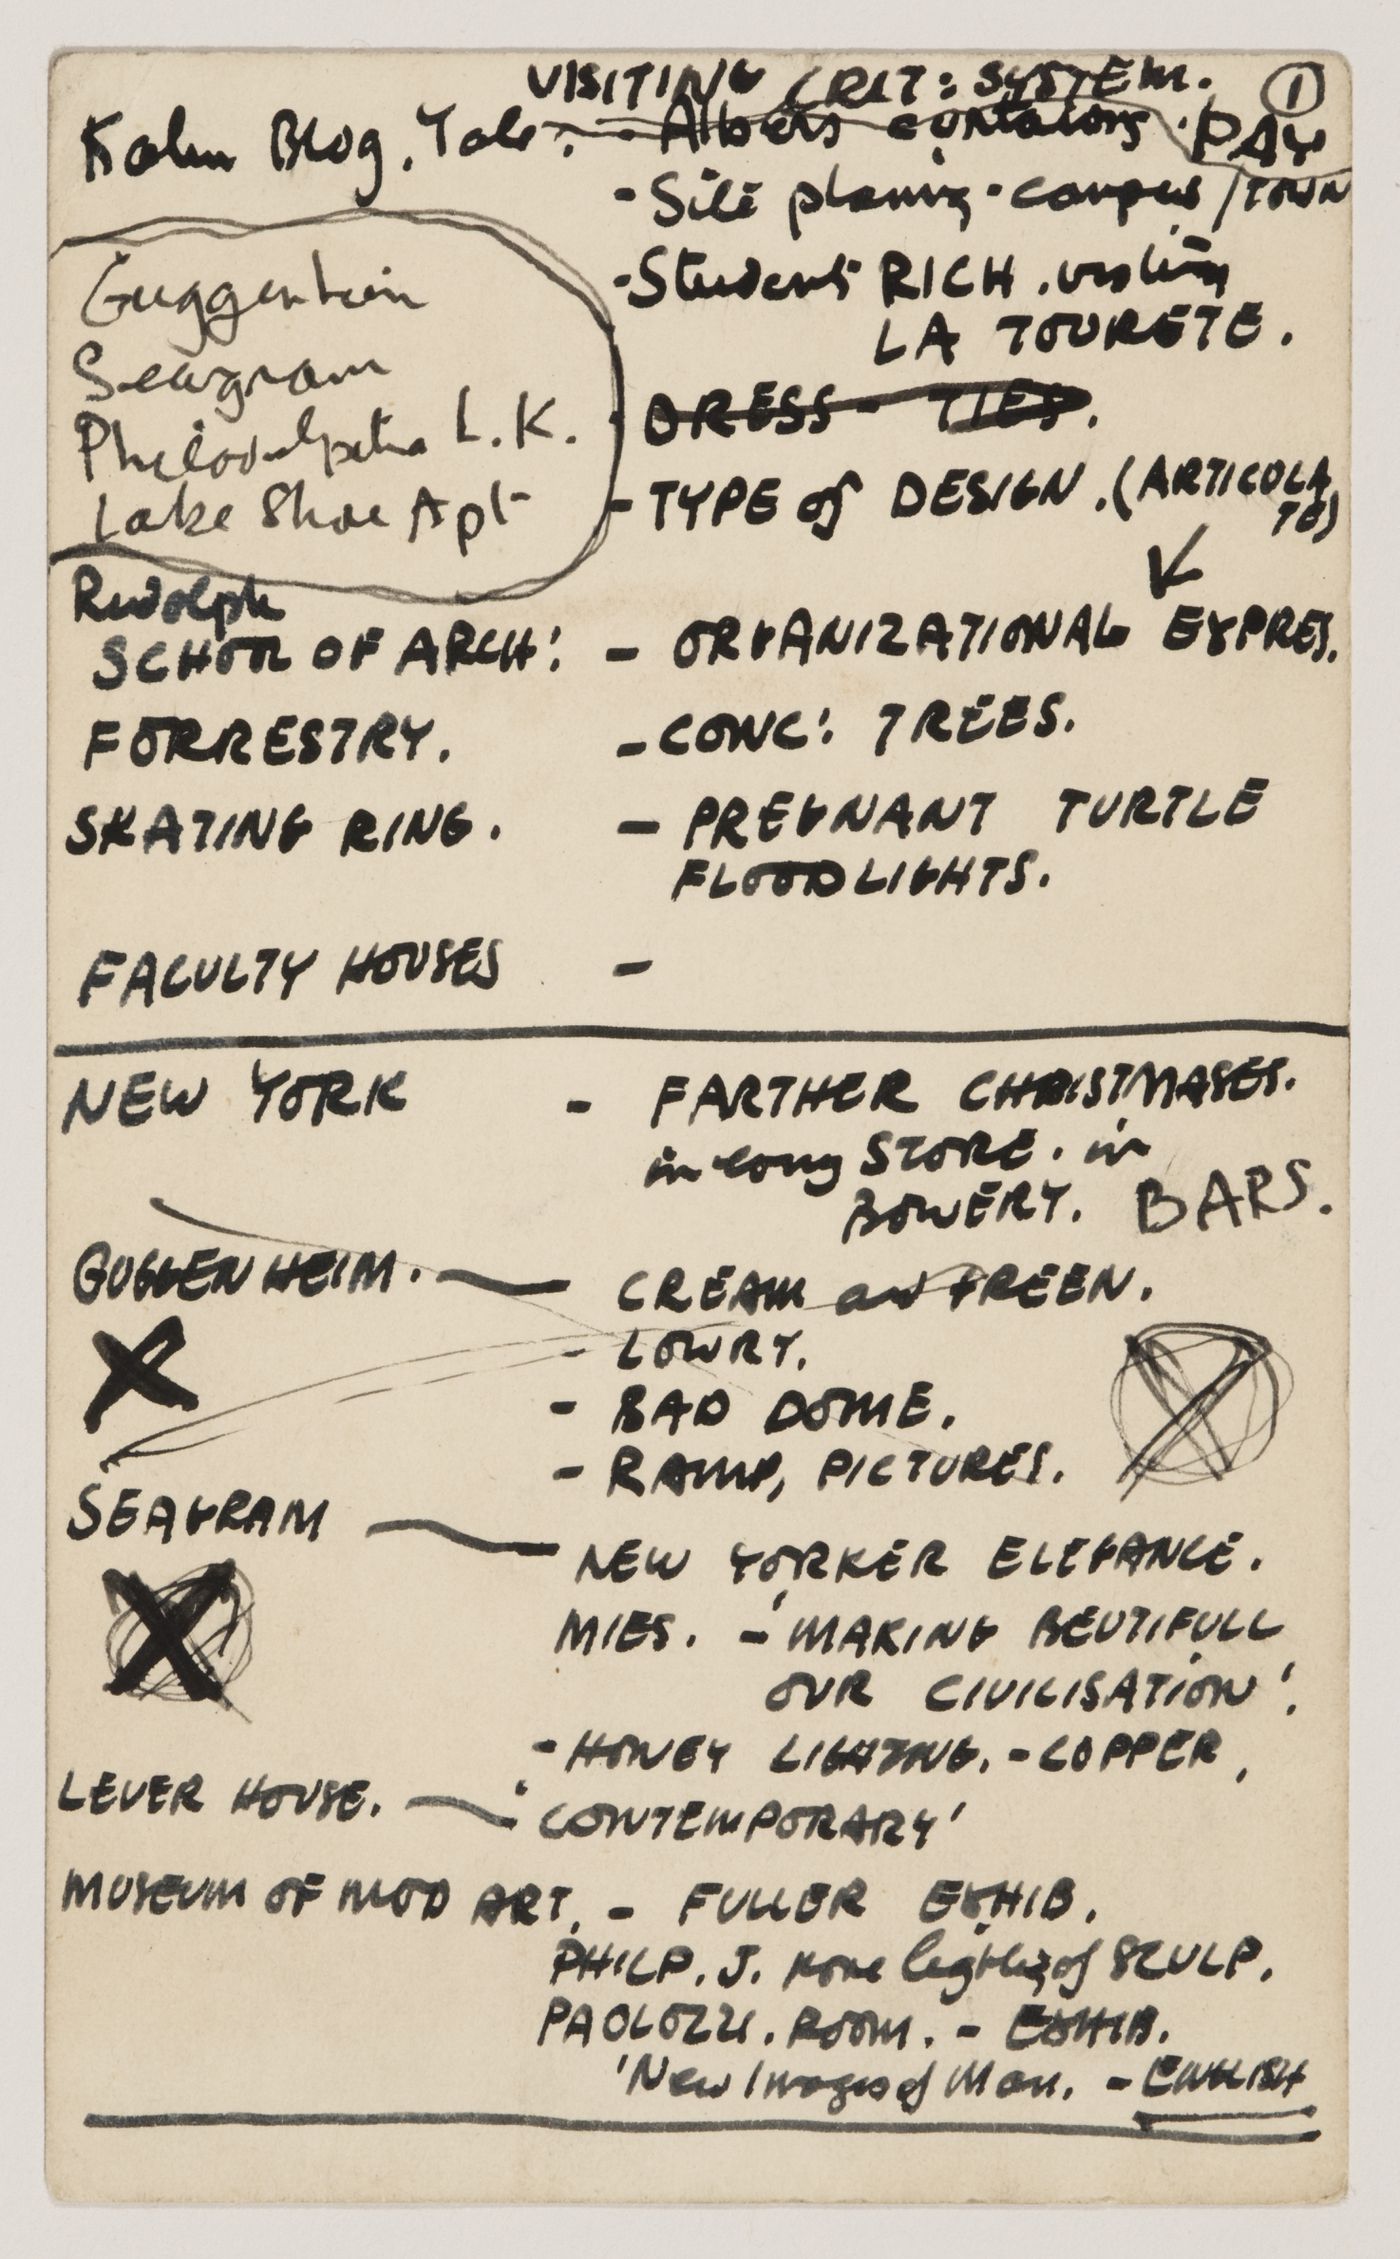 VISITING CRIT: SYSTEM. 1
Kahn Bldg. Yale: - Albers contators. PAY
- Site planing - campus / TOWN
Guggenheim
- Students RICH. visiting
LA TOURETE.
Seagram
Philadelphia L.K.
- DRESS - TIES.
Lake Shore Apt
- TYPE of DESIGN. (ARTICOLA
TE)
Rudolph
SCHOOL OF ARCH: - ORGANIZATIONAL EXPRES.
FORRESTRY. - CONC: TREES.
SKATING RING. - PREGNANT TURTLE
FLOODLIGHTS.
FACULTY HOUSES -
NEW YORK - FARTHER CHRISTMASES.
in long STORE. in
BOWERY. BARS.
GUGGENHEIM. - CREAM and GREEN.
- LOWRY.
- BAD DOME.
- RAMP, PICTURES.
SEAGRAM - NEW YORKER ELEGANCE.
MIES. - 'MAKING BEUTIFULL
OUR CIVILISATION'.
- HONEY LIGHTING. - COPPER,
LEVER HOUSE. - 'CONTEMPORARY'
MUSEUM OF MOD ART. - FULLER EXHIB.
PHILP. J. lighting of SCULP.
PAOLOZZI. ROOM. - EXHIB.
'New Images of Man. - ENGLISH